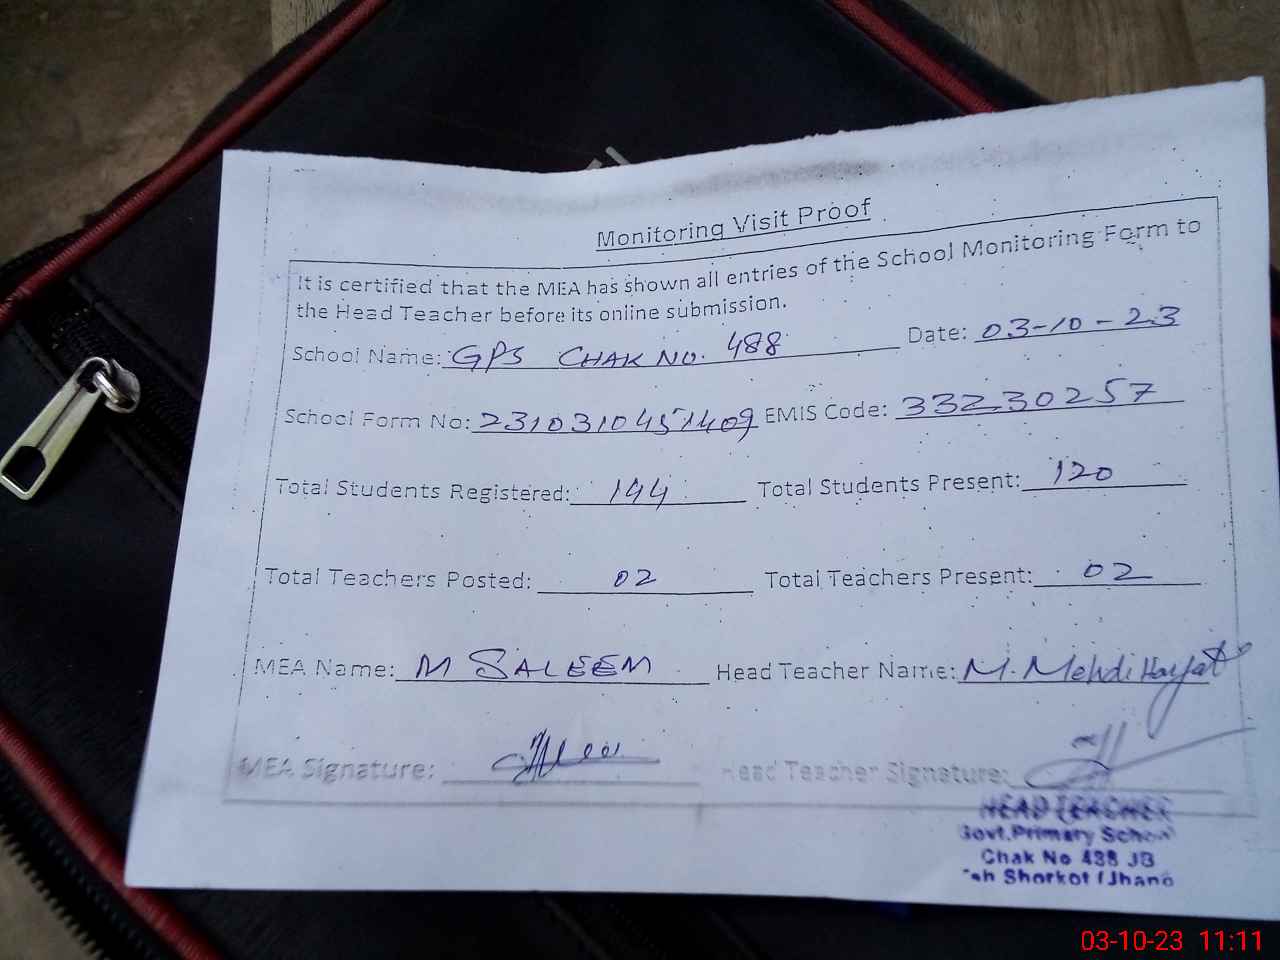 Monitoring Visit Proof
It is certified that the MEA has shown all entries of the School Monitoring Form to
the Head Teacher before its online submission.
School Name: GPS CHAK NO. 488 Date: 03-10-23
School Form No: 2310310451409 EMIS Code: 33230257
Total Students Registered: 144 Total Students Present: 120
Total Teachers Posted: 02 Total Teachers Present: 02
MEA Name: M SALEEM Head Teacher Name: M. Mehdi Hayat
MEA Signature: Head Teacher Signature:
HEAD TEACHER
Govt. Primary School
Chak No 488 JB
Teh Shorkot (Jhang
03-10-23 11:11